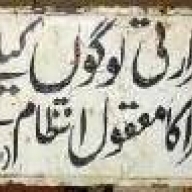 ارتی لوگوں کیلئے
کا معقول انتظام